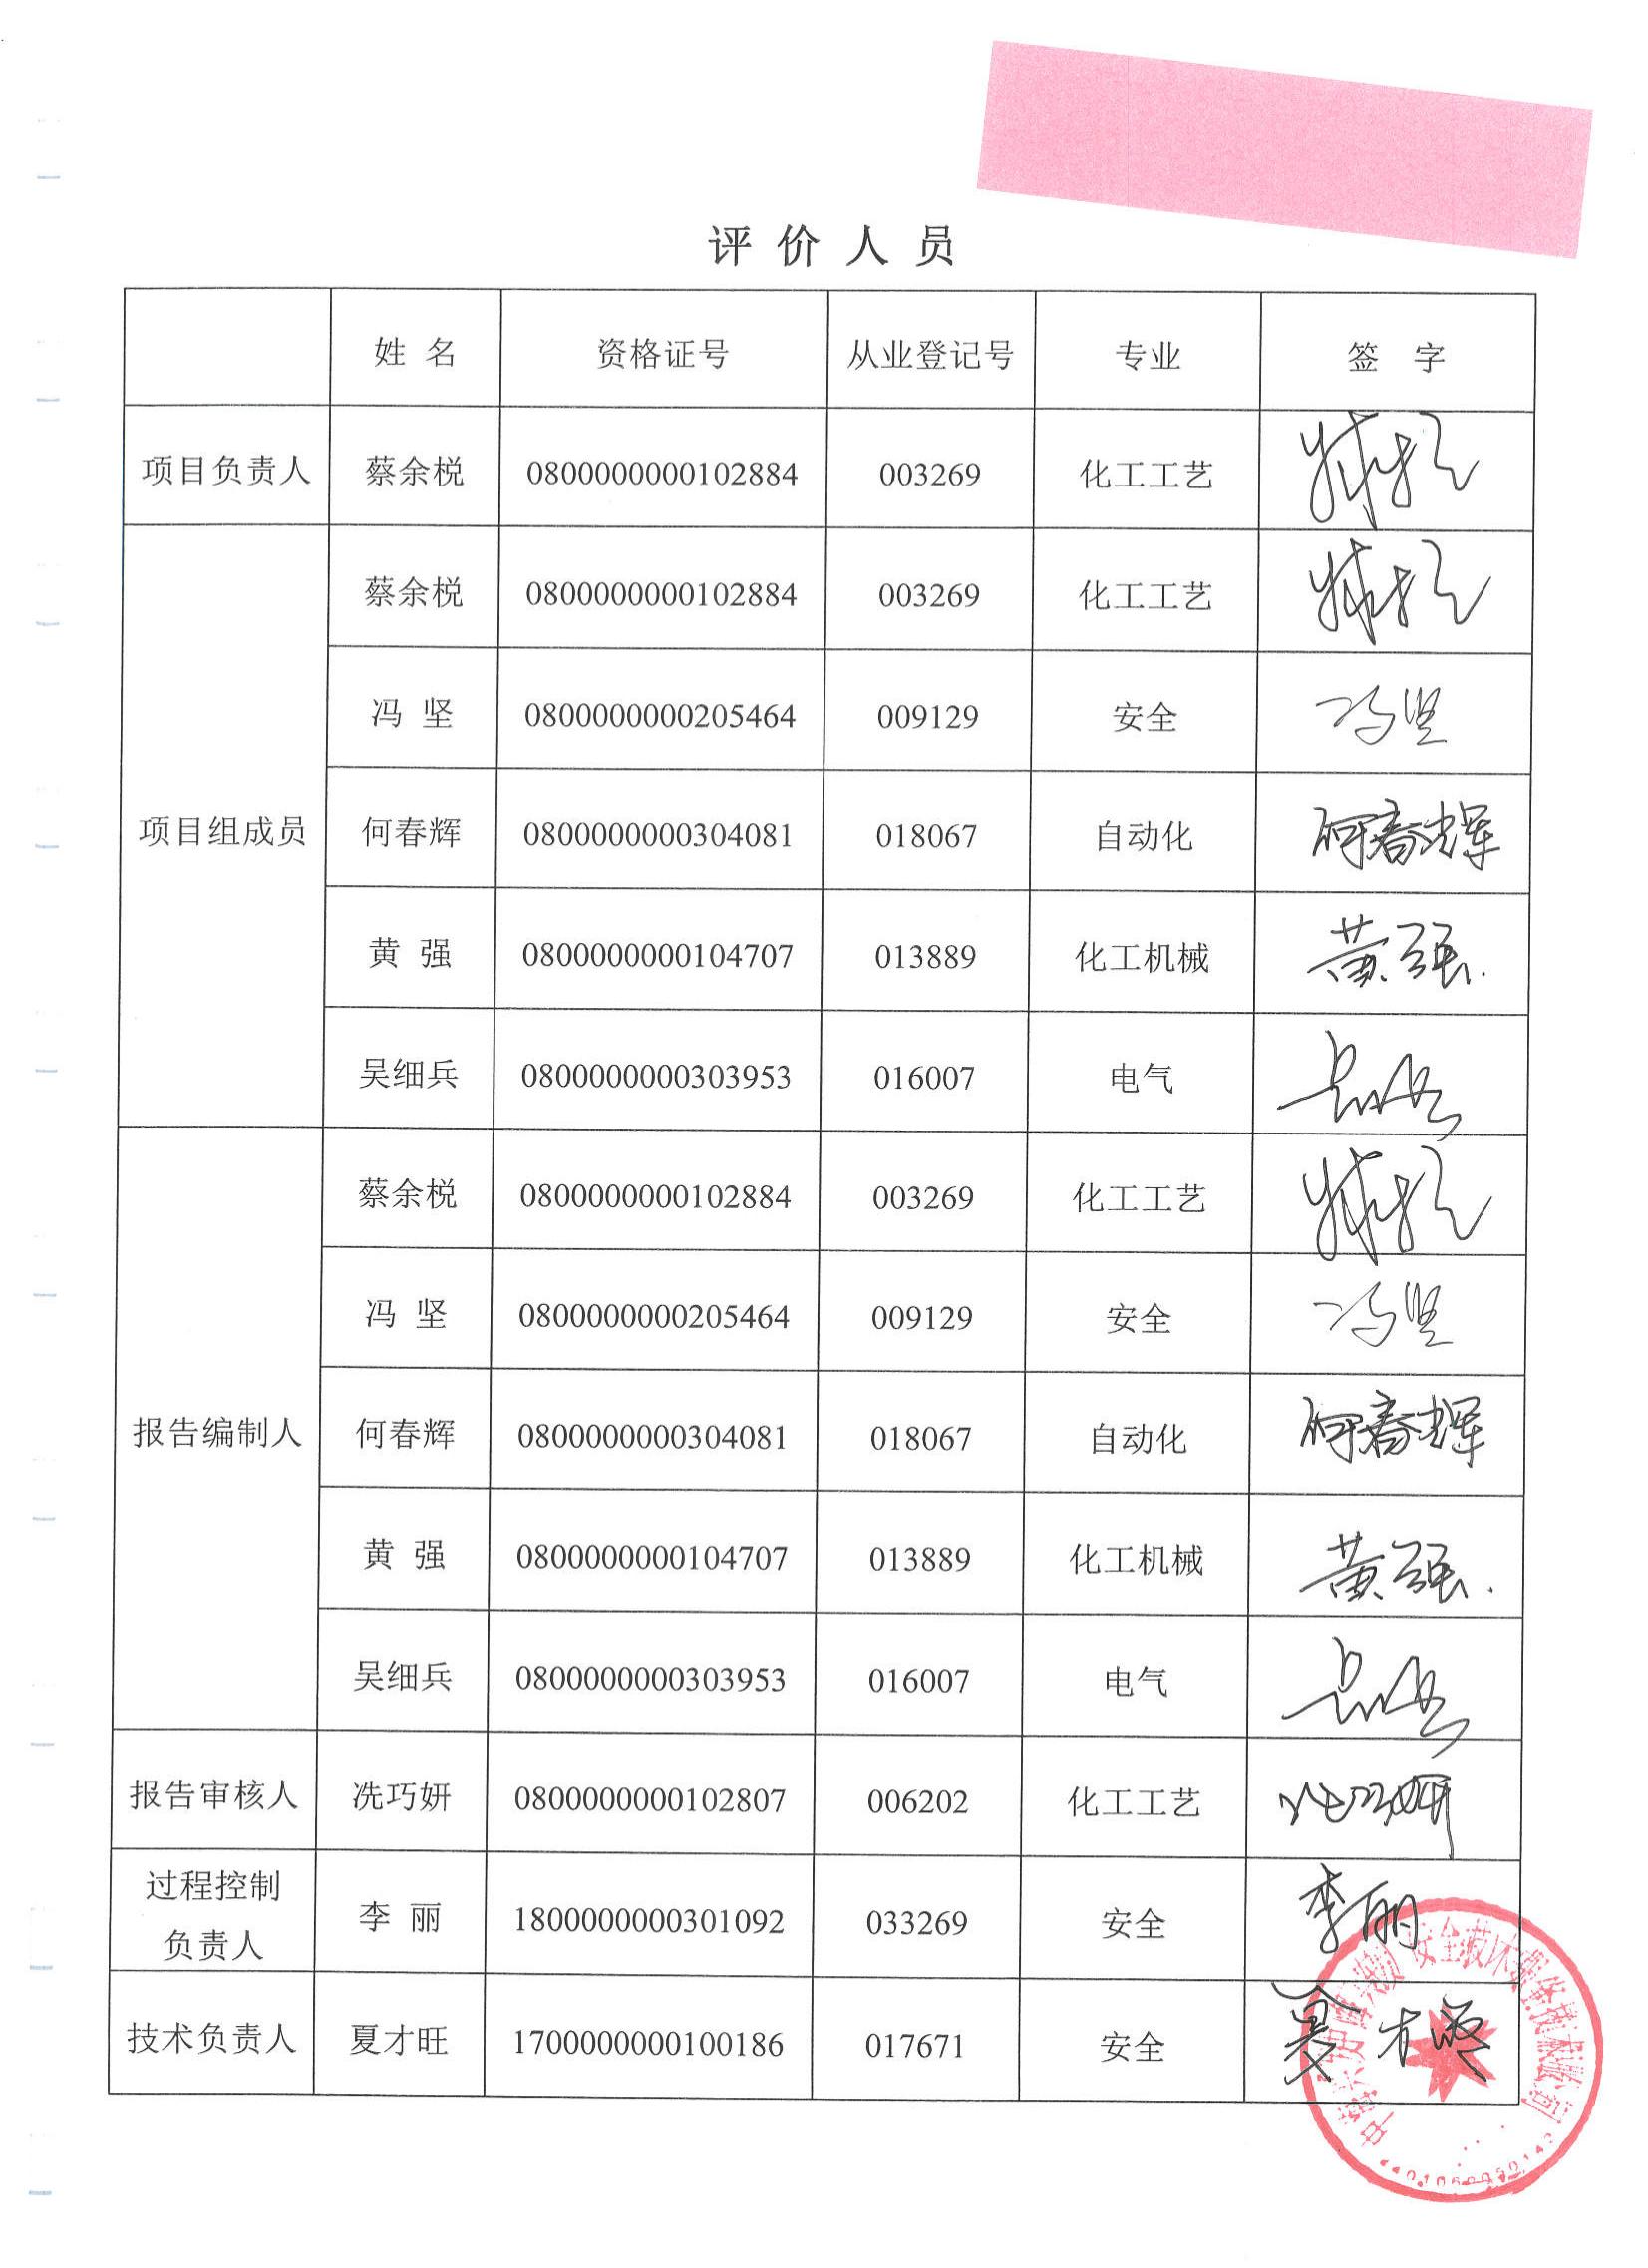 评价人员
姓名 资格证号 从业登记号 专业 签字
项目负责人 蔡余棁 0800000000102884 003269 化工工艺
项目组成员 蔡余棁 0800000000102884 003269 化工工艺
冯坚 0800000000205464 009129 安全 冯坚
何春辉 0800000000304081 018067 自动化 何春辉
黄强 0800000000104707 013889 化工机械 黄强
吴细兵 0800000000303953 016007 电气
报告编制人 蔡余棁 0800000000102884 003269 化工工艺
冯坚 0800000000205464 009129 安全 冯坚
何春辉 0800000000304081 018067 自动化 何春辉
黄强 0800000000104707 013889 化工机械 黄强
吴细兵 0800000000303953 016007 电气
报告审核人 冼巧妍 0800000000102807 006202 化工工艺
过程控制
负责人 李丽 1800000000301092 033269 安全 李丽
技术负责人 夏才旺 1700000000100186 017671 安全 夏才旺